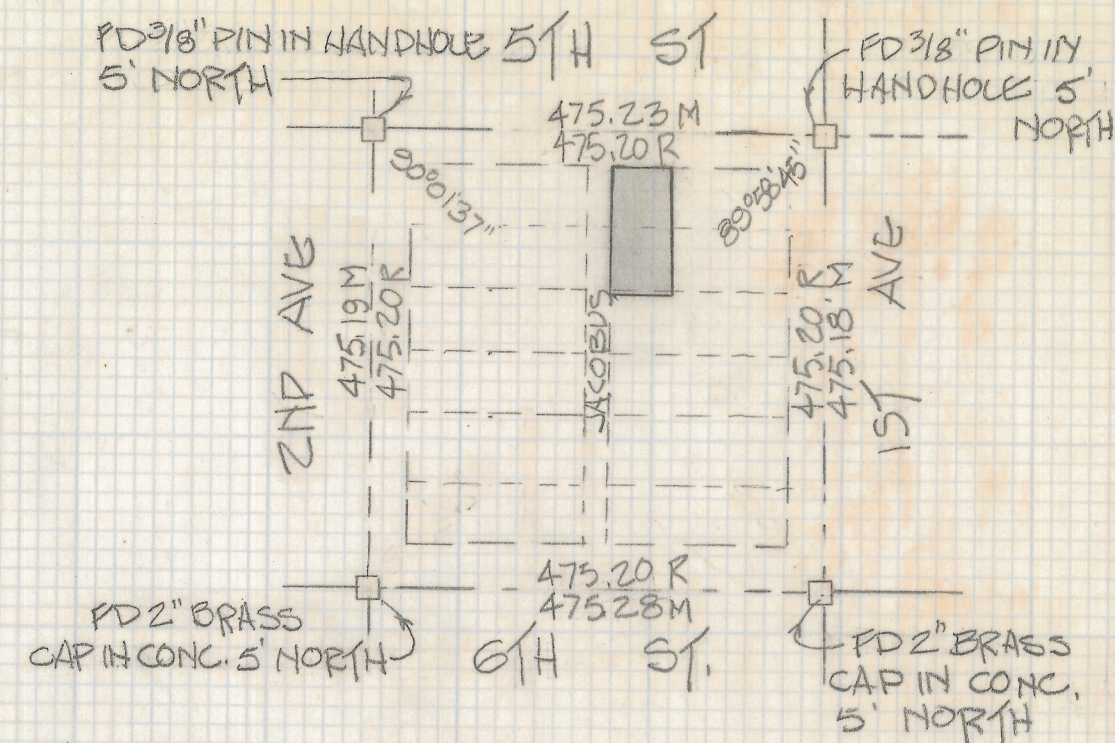 FD 3/8" PIN IN HANDHOLE
5' NORTH
5TH ST
FD 3/8" PIN IN
HANDHOLE 5'
NORTH
475.23 M
475.20 R
90°01'37"
89°58'45"
2ND AVE
475.19 M
475.20 R
JACOBUS
475.20 R
475.18' M
1ST AVE
475.20 R
475.28 M
FD 2" BRASS
CAP IN CONC. 5' NORTH
6TH ST.
FD 2" BRASS
CAP IN CONC.
5' NORTH